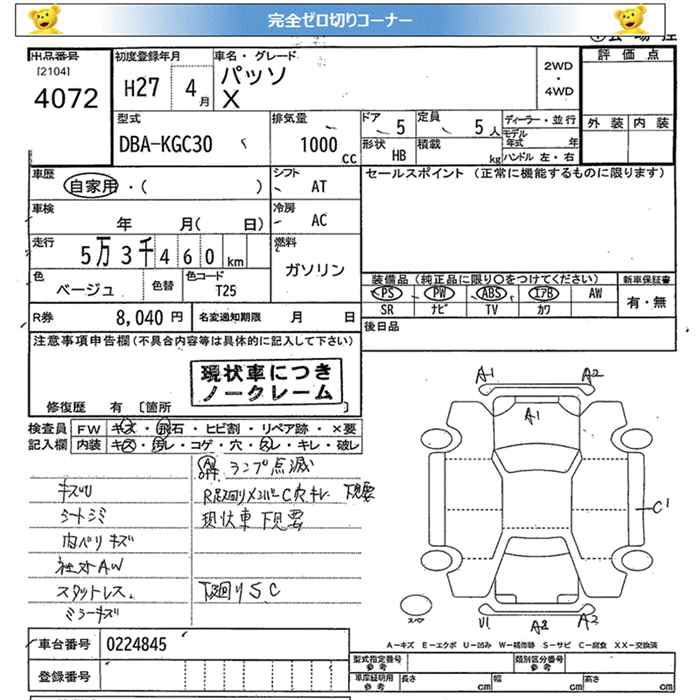 完全ゼロ切りコーナー
出品番号
[2104]
4072
初度登録年月
H27 4月
車名・グレード
パッソ
X
2WD
・
4WD
評価点
外装 内装
型式
DBA-KGC30
排気量
1000 CC
ドア 5
定員 5人
形状 HB
積載 kg
ディーラー・並行
モデル年式 年
ハンドル 左・右
車歴
自家用・( )
シフト AT
車検
年 月( 日)
冷房 AC
走行
5万3千460km
燃料
ガソリン
色
ベージュ
色替
色コード
T25
セールスポイント (正常に機能するものに限ります)
装備品(純正品に限り〇をつけてください)
新車保証書
PS PW ABS エアB AW
有・無
SR ナビ TV カワ
R券 8,040円
名変通知期限 月 日
後日品
注意事項申告欄(不具合内容等は具体的に記入して下さい)
現状車につき
ノークレーム
修復歴 有 [箇所 ]
検査員
記入欄
FW キズ・飛石・ヒビ割・リペア跡・×要
内装 キズ・汚レ・コゲ・穴・スレ・キレ・破レ
ランプ点滅
キズU
R足廻りメンバーC穴キレ 下見要
シートシミ
現状車 下見要
内ペリキズ
社外AW
スタットレス
下廻りSC
ミラーキズ
A1 A2
A1
C1
スペア
U1 A2 A2
A-キズ E-エクボ U-凹み W-補修跡 S-サビ C-腐食 XX-交換済
車台番号 0224845
登録番号
型式指定番号
参考
類別区分番号
参考
車庫証明用
参考
長さ cm
幅 cm
高さ cm